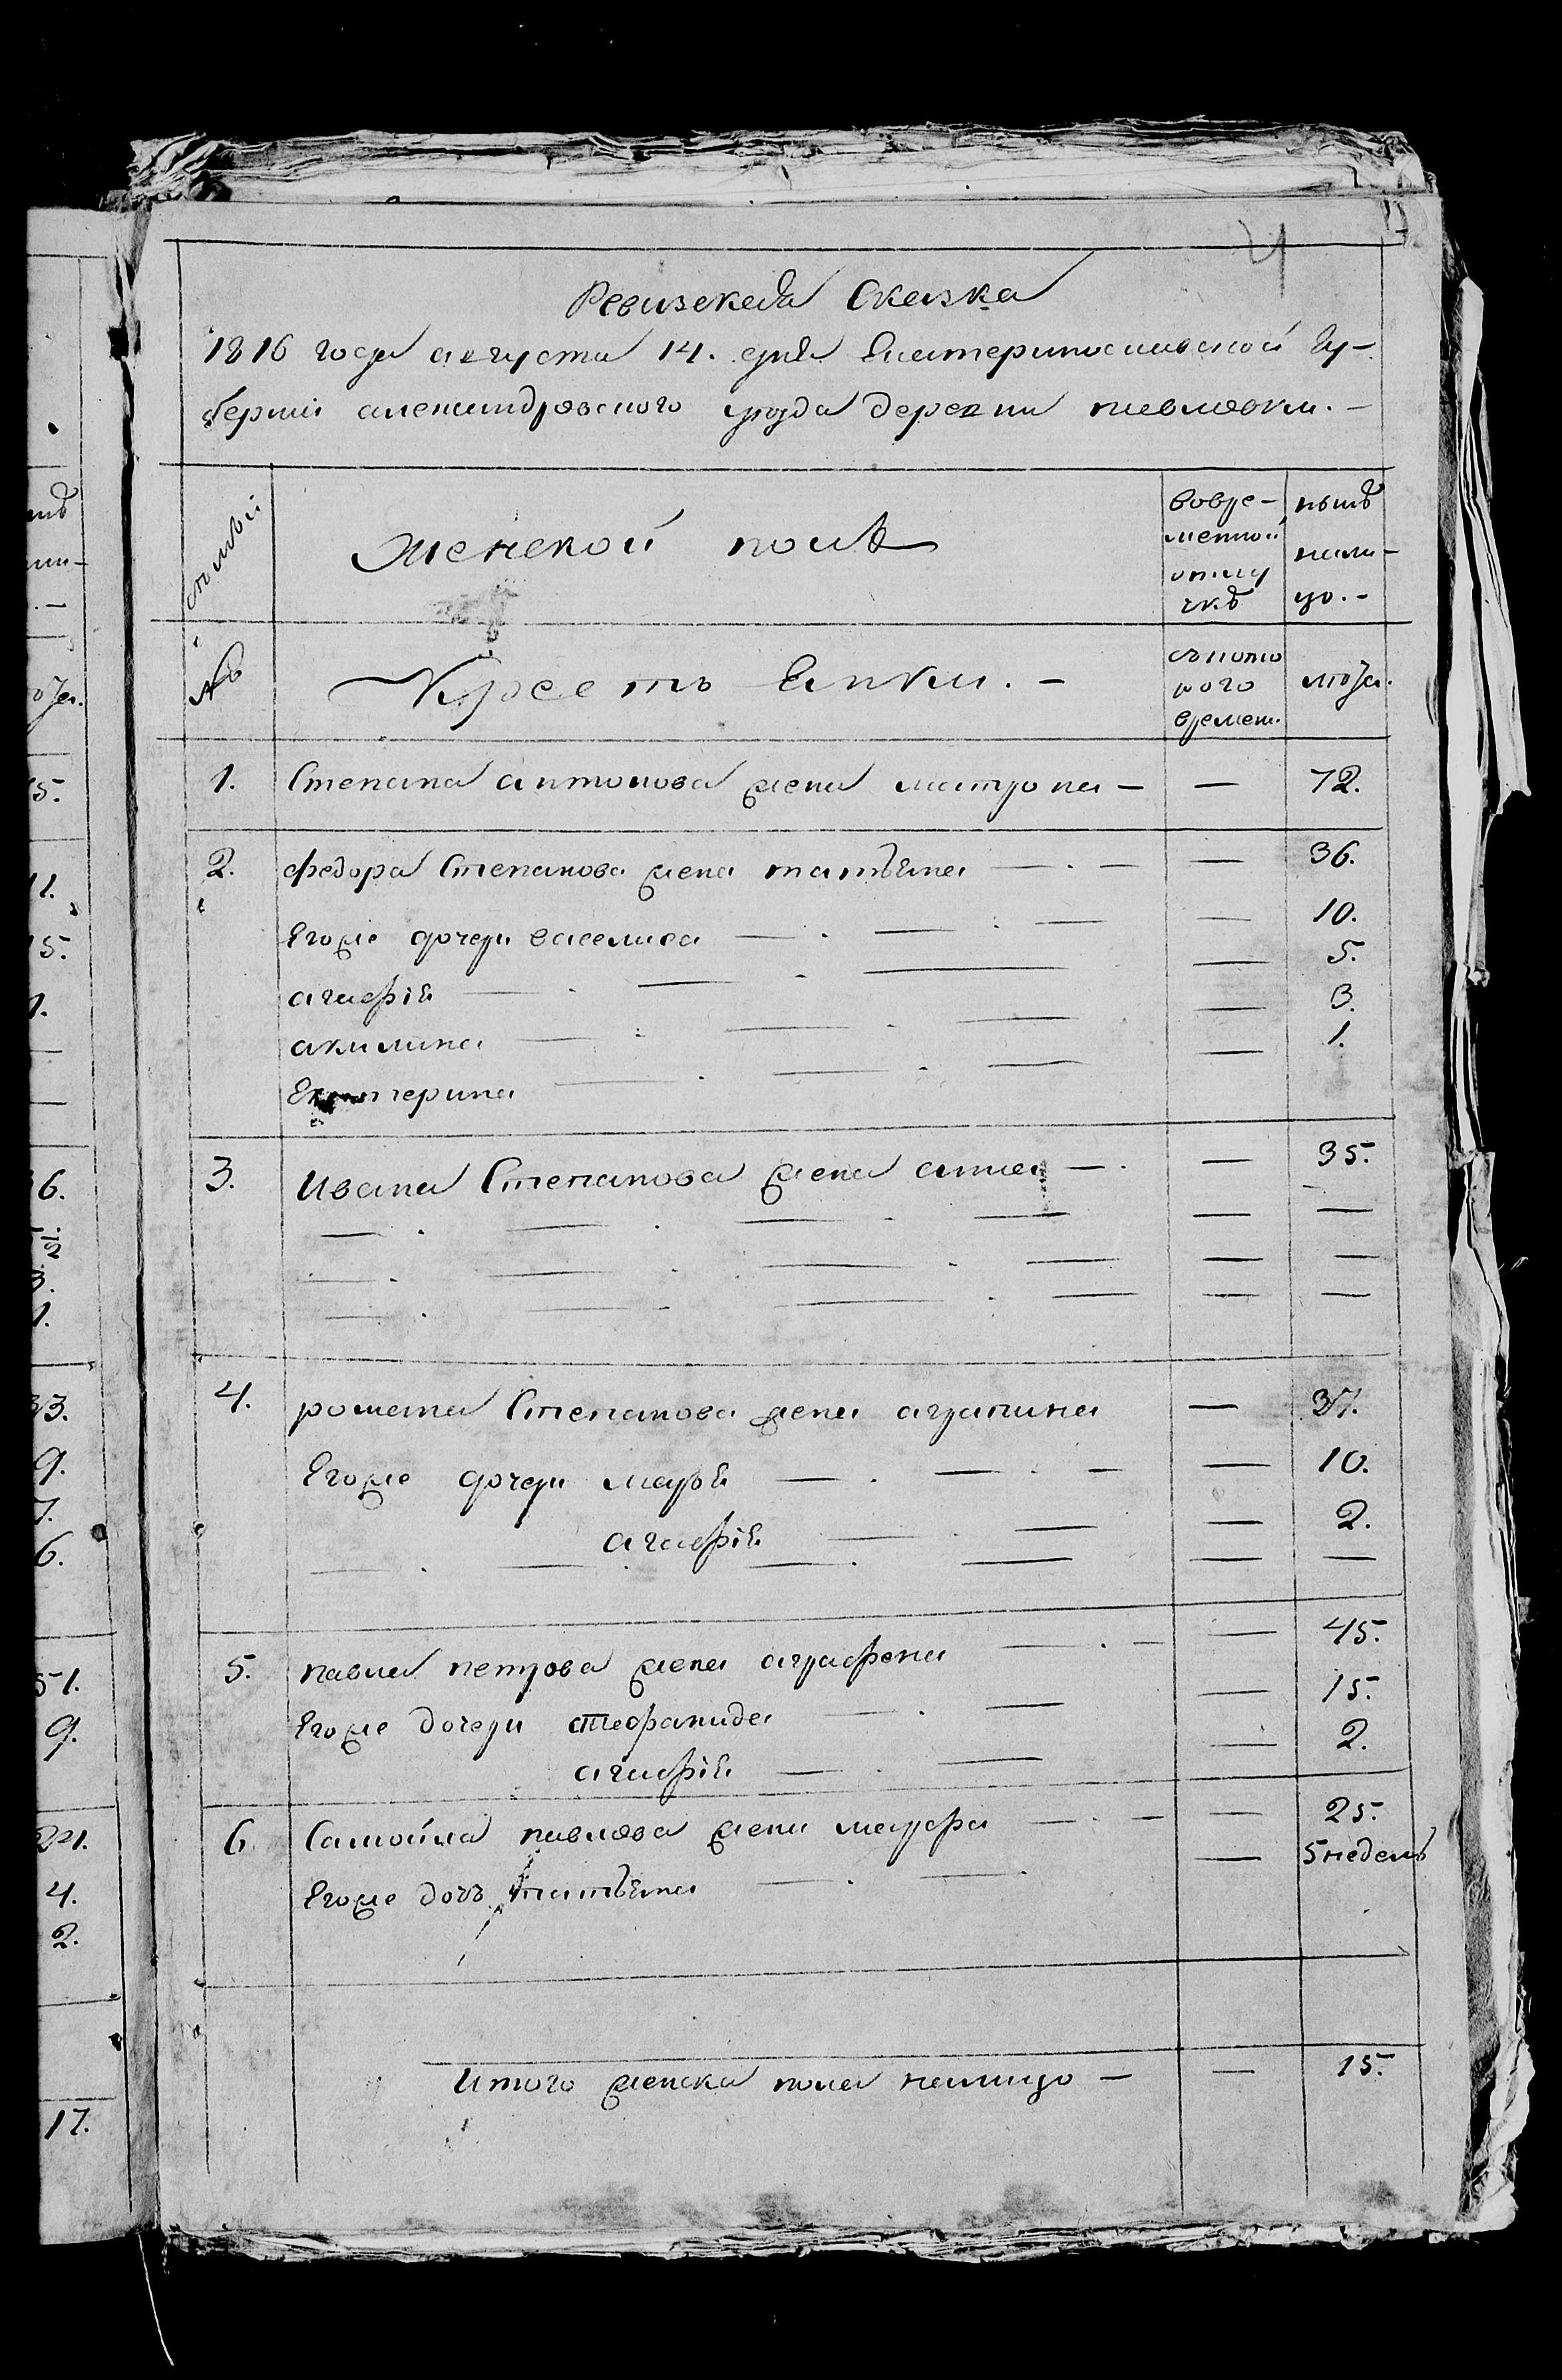 4
Ревизская Сказка
1816 года августа 14. дня Екатеринославской Гу-
берніи александровского уезда деревни павловки. –
семьи
Женской полъ
вовре-
менной
отлу
чкѣ
нынѣ
нали-
цо. –
№
Крестьянки. –
съкото
рого
времен.
лѣта.
1. Степана антонова жена матрона – — 72.
2. федора Степанова жена татьяна — 36.
Егоже дочери василиса — 10.
агафія — 5.
акилина — 3.
Екатерина — 1.
3. Ивана Степанова жена анна — 35.
4. романа Степанова жена аграпина — 37.
Егоже дочери марья — 10.
агафія — 2.
5. павла петрова жена аграфена — 45.
Егоже дочери стефанида — 15.
агафія — 2.
6. Самойла павлова жена марфа — 25.
Егоже дочь татьяна — 5 недель
Итого женска пола налицо – — 15.
15.
11.
15.
1.
6.
3.
1.
33.
9.
7.
6.
51.
9.
4.
2.
17.